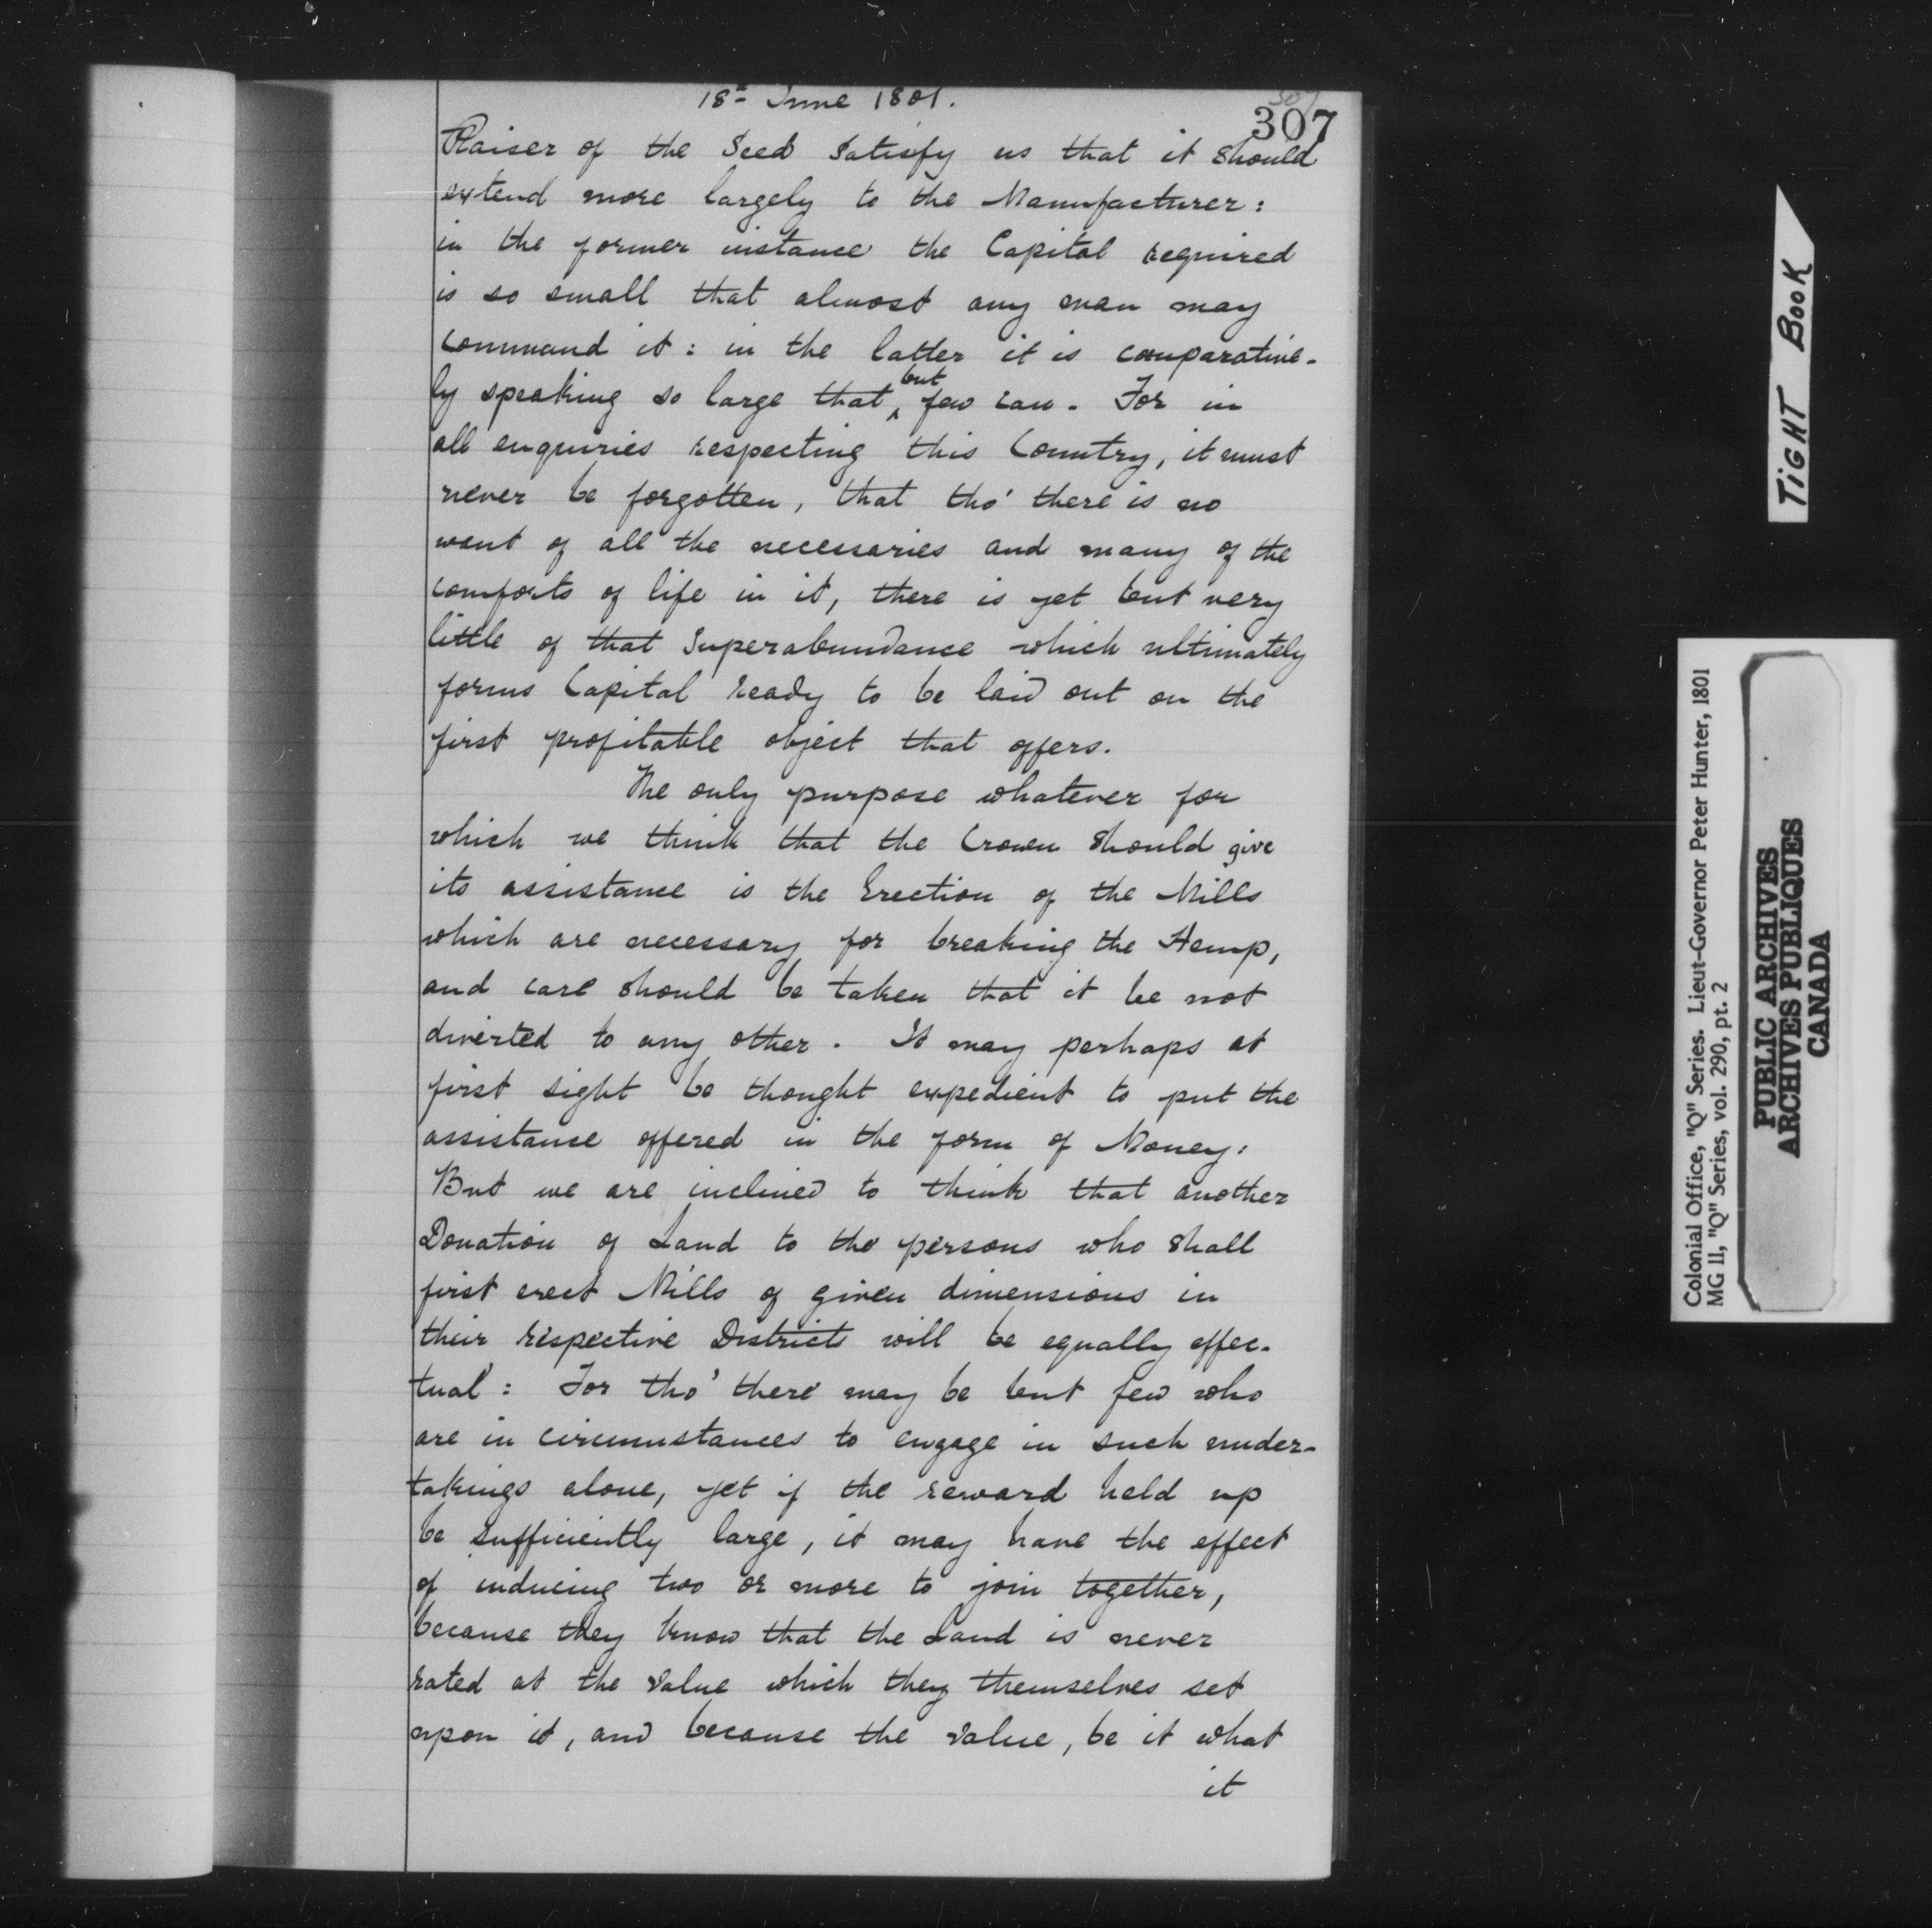 18th June 1801.
307
307
Raiser of the Seed Satisfy us that it should
extend more largely to the Manufacturer:
in the former instance the Capital required
is so small that almost any man may
command it: in the latter it is comparative-
but
ly speaking so large that ^ few can. For in
all enquiries respecting this Country, it must
never be forgotten, that tho' there is no
want of all the necessaries and many of the
comforts of life in it, there is yet but very
little of that Superabundance which ultimately
forms Capital ready to be laid out on the
first profitable object that offers.
The only purpose whatever for
which we think that the Crown should give
its assistance is the Erection of the Mills
which are necessary for breaking the Hemp,
and care should be taken that it be not
diverted to any other. It may perhaps at
first sight be thought expedient to put the
assistance offered in the form of Money:
But we are inclined to think that another
Donation of Land to the persons who shall
first erect Mills of given dimensions in
their respective Districts will be equally effec-
tual: For tho' there may be but few who
are in circumstances to engage in such under-
takings alone, yet if the reward held up
be sufficiently large, it may have the effect
of inducing two or more to join together,
because they know that the Land is never
rated at the value which they themselves set
upon it, and because the value, be it what
it
TIGHT BOOK
Colonial Office, "Q" Series. Lieut-Governor Peter Hunter, 1801
MG 11, "Q" Series, vol. 290, pt. 2
PUBLIC ARCHIVES
ARCHIVES PUBLIQUES
CANADA